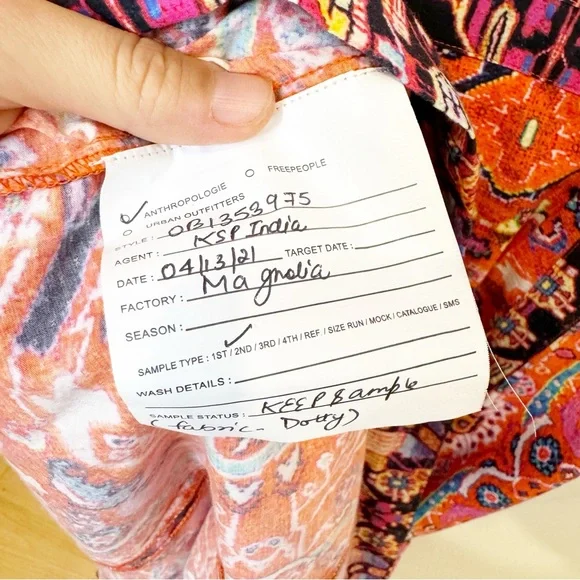 ✓ ANTHROPOLOGIE ○ FREEPEOPLE
○ URBAN OUTFITTERS
STYLE : OB1353975
AGENT : KSP India
DATE : 04/13/21 TARGET DATE :
FACTORY : Magnolia
SEASON :
SAMPLE TYPE : 1ST / 2ND / 3RD / 4TH / REF / SIZE RUN / MOCK / CATALOGUE / SMS
WASH DETAILS :
SAMPLE STATUS : KEEP Sample
(fabric - Dotty)